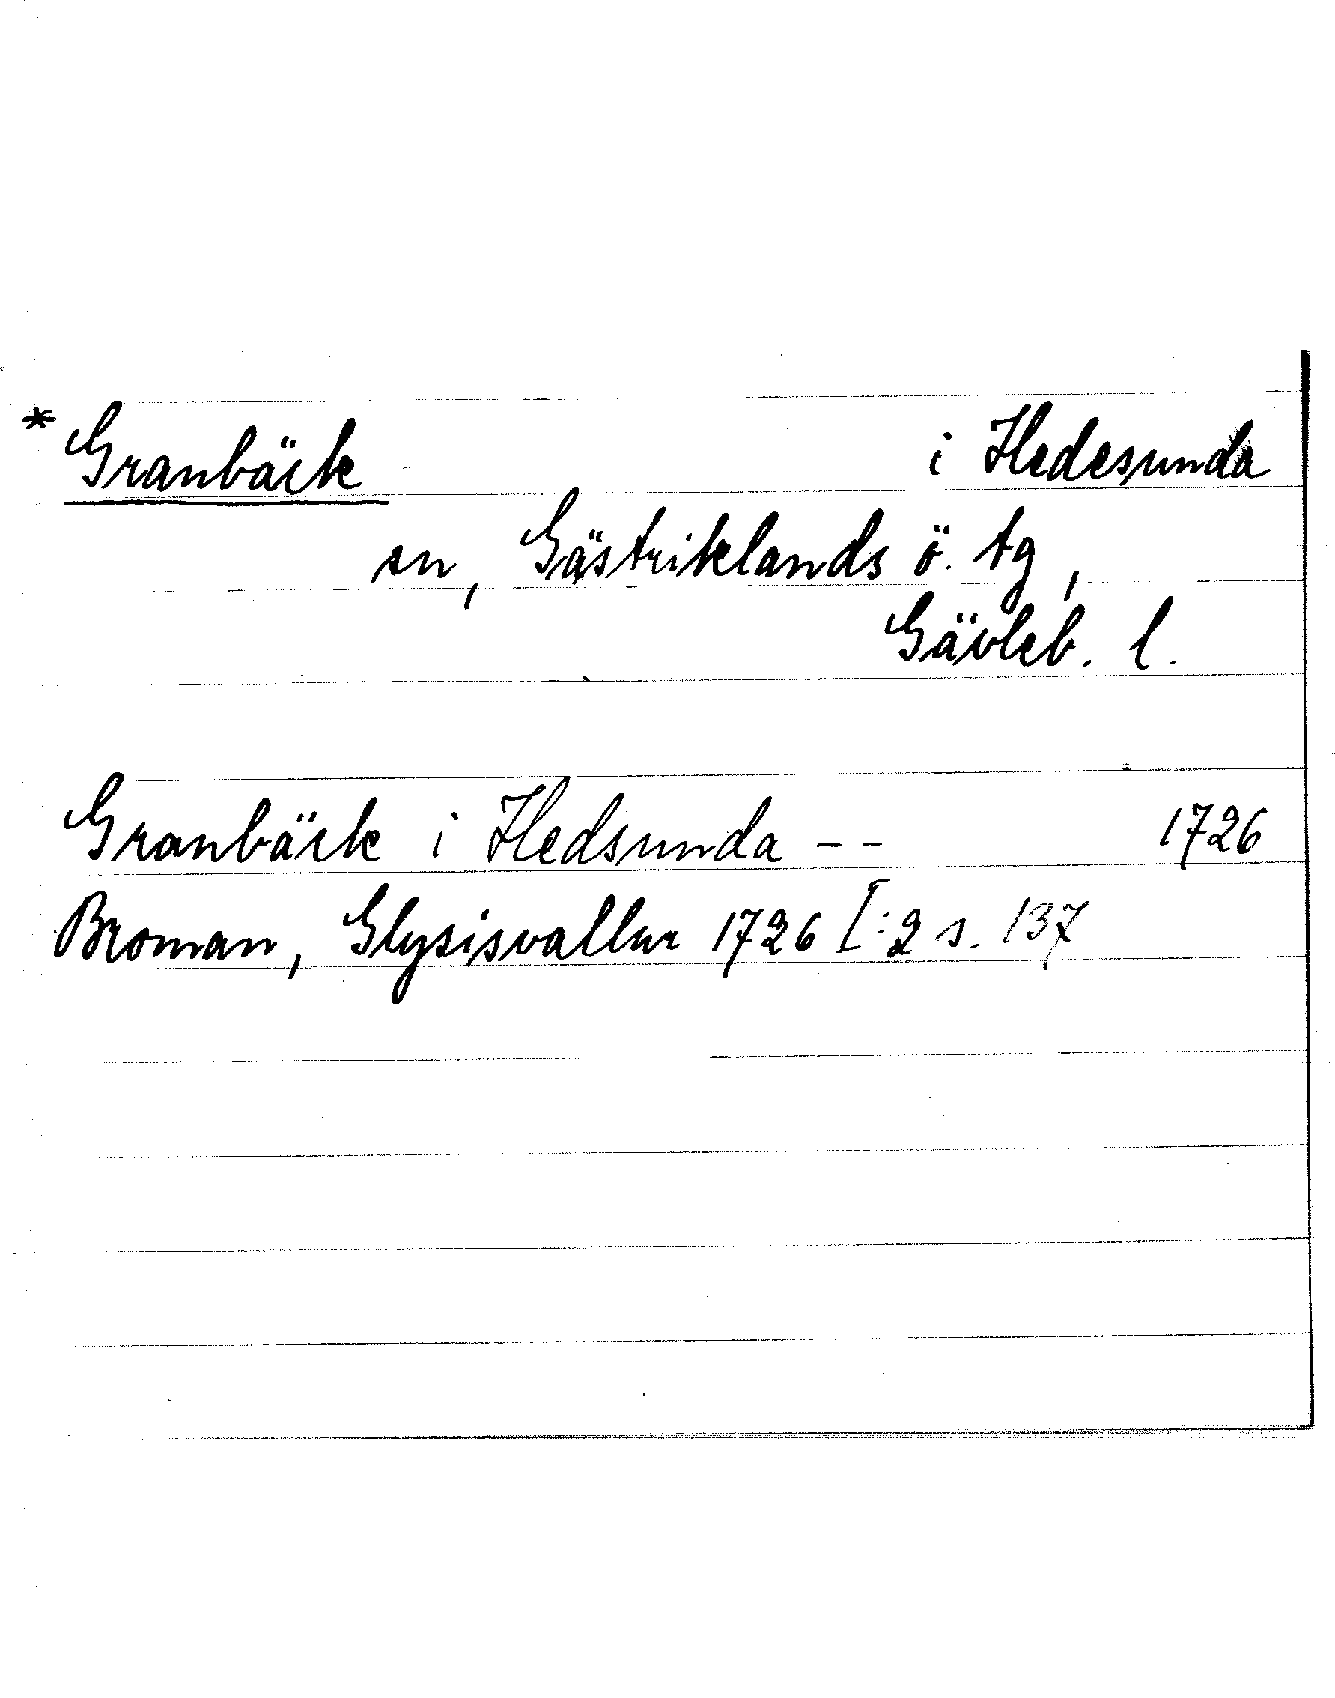 * Granbäck i Hedesunda
sn, Gästriklands ö. tg,
Gävleb. l.
Granbäck i Hedsunda -- 1726
Broman, Glysisvallur 1726 I:2 s. 137